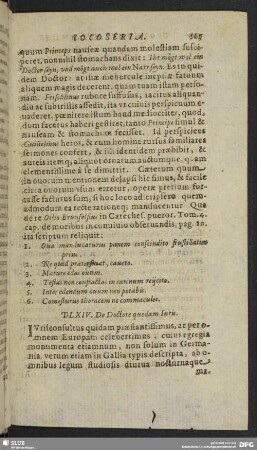 IOCOSERIA. 665
quum Princeps nauseæ quandam molestiam susci-
peret, nonnihil stomachans dixit: Ihr mögt wol ein
Doctor seyn, und mögt auch wol ein Narr seyn. Est in qui-
dem Doctor: at risæ mehercule ineptiæ fatuum
aliquem magis decerent, quam tuam istam perso-
nam. Frischlinus rubore suffusus, tacitus aliquan-
diu ac subtristis assedit, ita ut cuivis perspicuum
eva-
deret, pœnitere istum haud mediocriter, quod,
dum facetus haberi gestiret, tanto Principi simul &
nauseam & stomachum fecisset. Id perspiciens
heros, & cum homine rursus familiares
sermones confert, & illi identidem, ut hilariorem
eum, aliquot ornat auctumque, quam
clementissime à se dimittit. Cæterum quum
in ovorum mentionem delapsi hic simus, & facile
circa ovorum usum erretur, operæ pretium for-
casse facturus sim, si hoc loco adscripsero quem-
admodum ea recte ratione manducentur. Qua
de re Otho Brunfelsius in Catechesi pueror. Tom. 4.
cap. de moribus in convivio observandis, pag.
ita scriptum reliquit:
1. Ova manducaturus panem conscindito frustillatim
prius.
2. Ne quid præterfluat, caveto.
3. Mature edas ovum.
4. Testas non confractas in catinum rejicito.
5. Inter edendum ovum non potabis.
6. Comesturus thoracem ne commacules.
DLXIV. De Doctore quodam Juris.
IUrisconsultus quidam præstantissimus, ac per o-
mnem Europam celeberrimus, cujus egregia
monumenta etiamnum, non solum in Germa-
nia, verum etiam in Gallia typis descripta, ab o-
mnibus legum studiosis diurna nocturnaque
ma-
SLUB